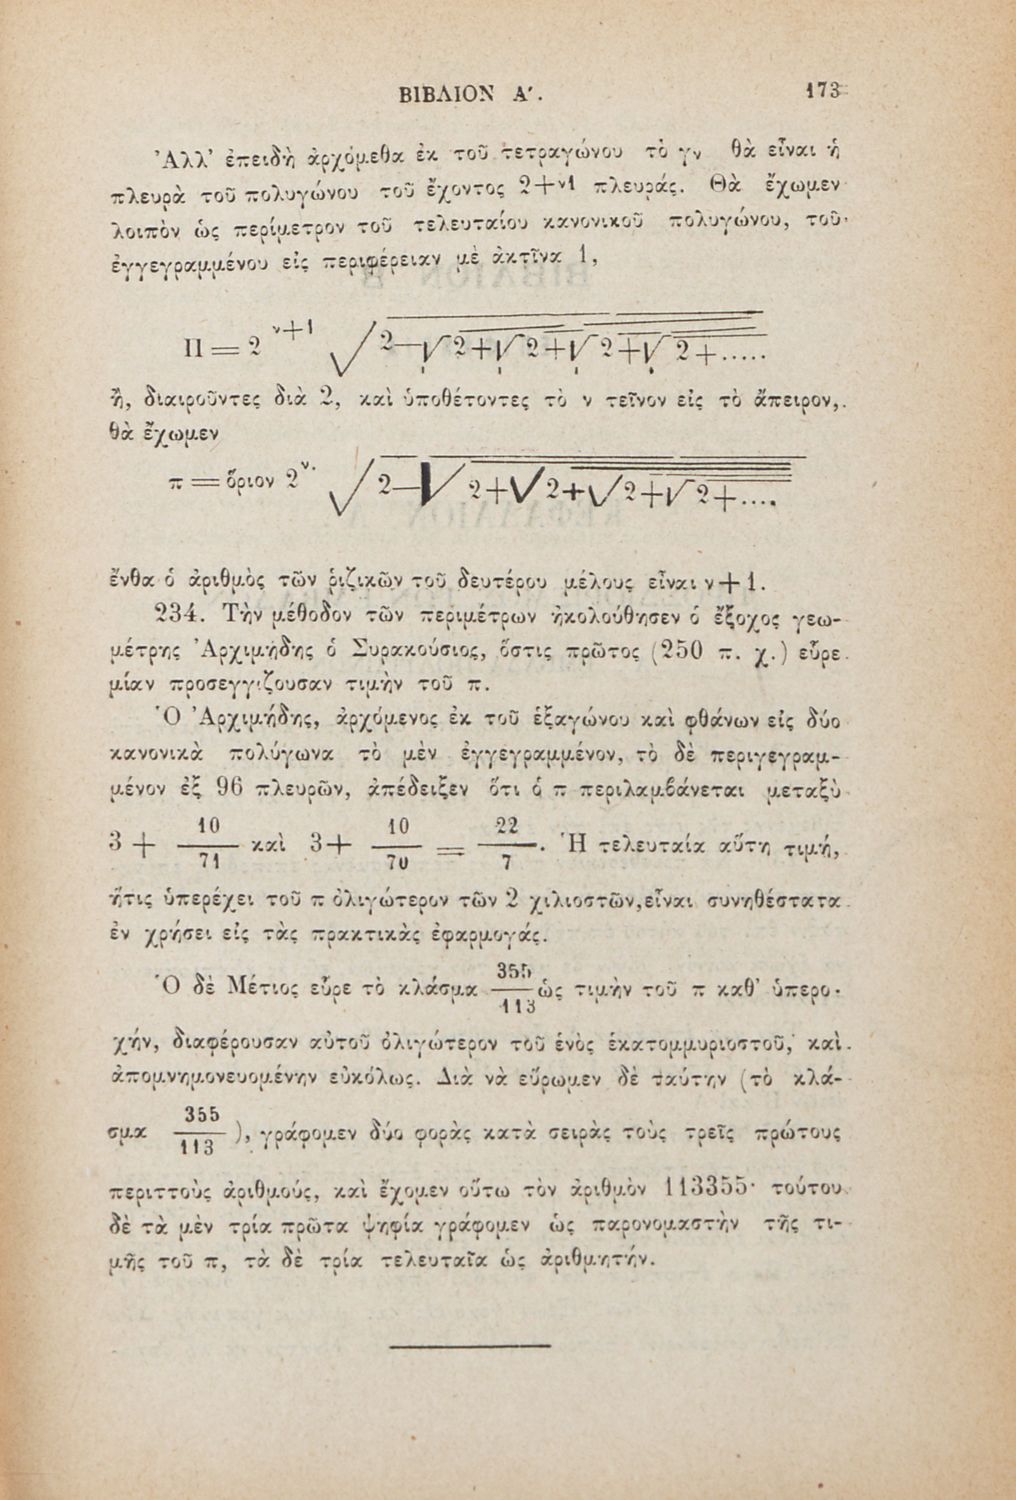 ΒΙΒΛΙΟΝ Α′. 173
Ἀλλ’ ἐπειδὴ ἀρχόμεθα ἐκ τοῦ τετραγώνου τὸ γν θὰ εἶναι ἡ
πλευρὰ τοῦ πολυγώνου τοῦ ἔχοντος 2+ν1 πλευράς. Θὰ ἔχωμεν
λοιπὸν ὡς περίμετρον τοῦ τελευταίου κανονικοῦ πολυγώνου, τοῦ
ἐγγεγραμμένου εἰς περιφέρειαν μὲ ἀκτῖνα 1,
Π = 2 ν+1 √2—√2+√2+√2+√2+.....
ἤ, διαιροῦντες διὰ 2, καὶ ὑποθέτοντες τὸ ν τεῖνον εἰς τὸ ἄπειρον,
θὰ ἔχωμεν
π = ὅριον 2 ν. √2—√2+√2+√2+√2+....
ἔνθα ὁ ἀριθμὸς τῶν ῥιζικῶν τοῦ δευτέρου μέλους εἶναι ν+1.
234. Τὴν μέθοδον τῶν περιμέτρων ἠκολούθησεν ὁ ἔξοχος γεω-
μέτρης Ἀρχιμήδης ὁ Συρακούσιος, ὅστις πρῶτος (250 π. χ.) εὗρε
μίαν προσεγγίζουσαν τιμὴν τοῦ π.
Ὁ Ἀρχιμήδης, ἀρχόμενος ἐκ τοῦ ἑξαγώνου καὶ φθάνων εἰς δύο
κανονικὰ πολύγωνα τὸ μὲν ἐγγεγραμμένον, τὸ δὲ περιγεγραμ-
μένον ἐξ 96 πλευρῶν, ἀπέδειξεν ὅτι ὁ π περιλαμβάνεται μεταξὺ
3 + 10/71 καὶ 3+ 10/70 = 22/7. Ἡ τελευταία αὕτη τιμή,
ἥτις ὑπερέχει τοῦ π ὀλιγώτερον τῶν 2 χιλιοστῶν,εἶναι συνηθέστατα
ἐν χρήσει εἰς τὰς πρακτικὰς ἐφαρμογάς.
Ὁ δὲ Μέτιος εὗρε τὸ κλάσμα 355/113 ὡς τιμὴν τοῦ π καθ’ ὑπερο-
χήν, διαφέρουσαν αὐτοῦ ὀλιγώτερον τοῦ ἑνὸς ἑκατομμυριοστοῦ, καὶ
ἀπομνημονευομένην εὐκόλως. Διὰ νὰ εὕρωμεν δὲ ταύτην (τὸ κλά-
σμα 355/113), γράφομεν δύο φορὰς κατὰ σειρὰς τοὺς τρεῖς πρώτους
περιττοὺς ἀριθμούς, καὶ ἔχομεν οὕτω τὸν ἀριθμὸν 113355· τούτου
δὲ τὰ μὲν τρία πρῶτα ψηφία γράφομεν ὡς παρονομαστὴν τῆς τι-
μῆς τοῦ π, τὰ δὲ τρία τελευταῖα ὡς ἀριθμητήν.